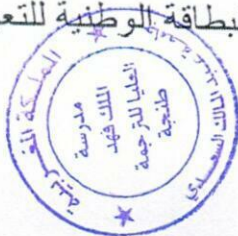 بطاقة الوطنية للتع
المملكة المغربية
جامعة عبد المالك السعدي
مدرسة
الملك فهد
العليا للترجمة
طنجة